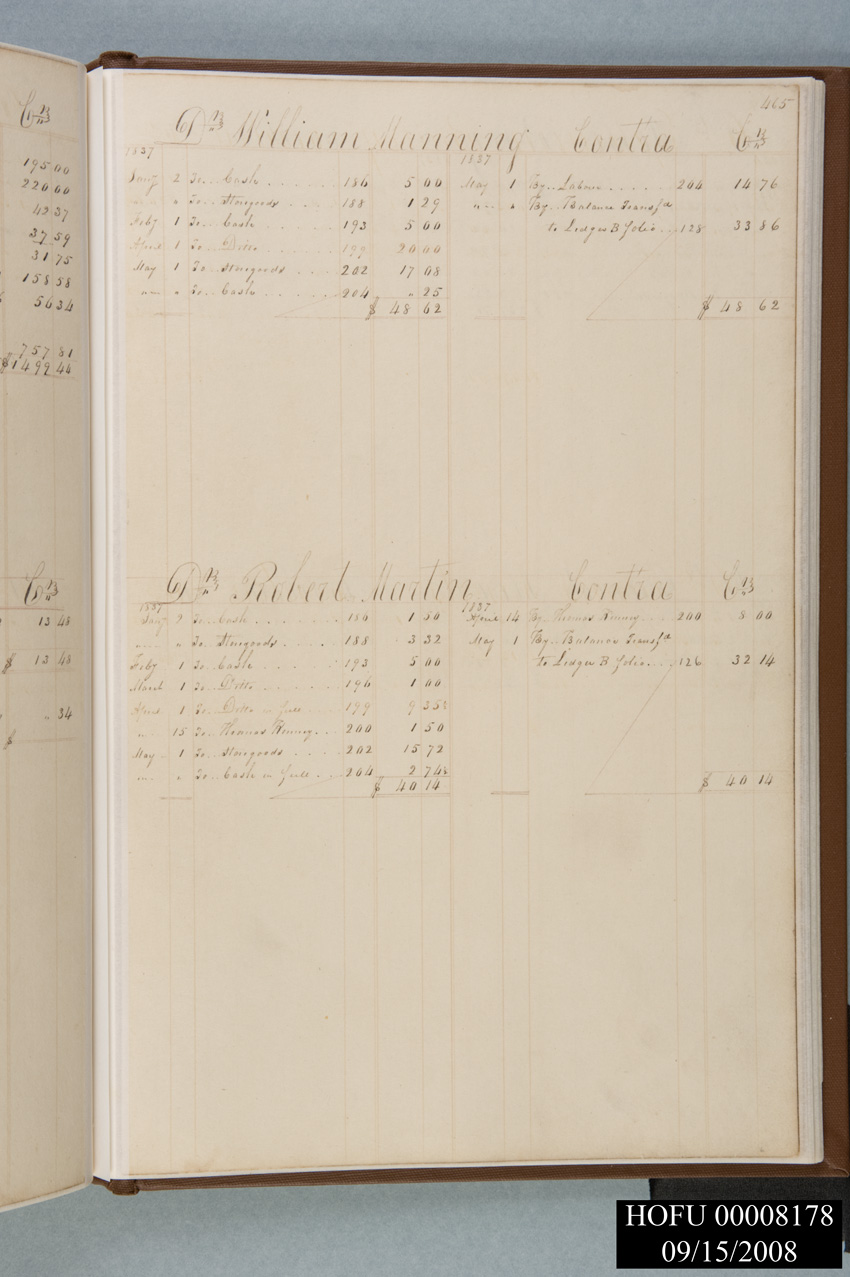 Cr
195 00
220 00
42 37
37 59
31 75
158 58
56 34
757 81
$1499 44
Cr
13 48
$ 13 48
" 34
$
465
Dr William Manning Contra Cr
1837 1837
Jany 2 To.. Cash 186 5 00 May 1 By.. Labour 204 14 76
" " To.. Storegoods 188 1 29 " " By.. Balance Transfd
Feby 1 To.. Cash 193 5 00 to Ledger B folio 128 33 86
April 1 To.. Ditto 199 20 00
May 1 To.. Storegoods 202 17 08
" " To.. Cash 204 " 25
$ 48 62 $ 48 62
Dr Robert Martin Contra Cr
1837 1837
Jany 2 To.. Cash 186 1 50 April 14 By.. Thomas Kinney 200 8 00
" " To.. Storegoods 188 3 32 May 1 By.. Balance Transfd
Feby 1 To.. Cash 193 5 00 to Ledger B folio 126 32 14
March 1 To.. Ditto 196 1 00
April 1 To.. Ditto in full 199 9 35½
" 15 To.. Thomas Kinney 200 1 50
May 1 To.. Storegoods 202 15 72
" " To.. Cash in full 204 2 74½
$ 40 14 $ 40 14
HOFU 00008178
09/15/2008